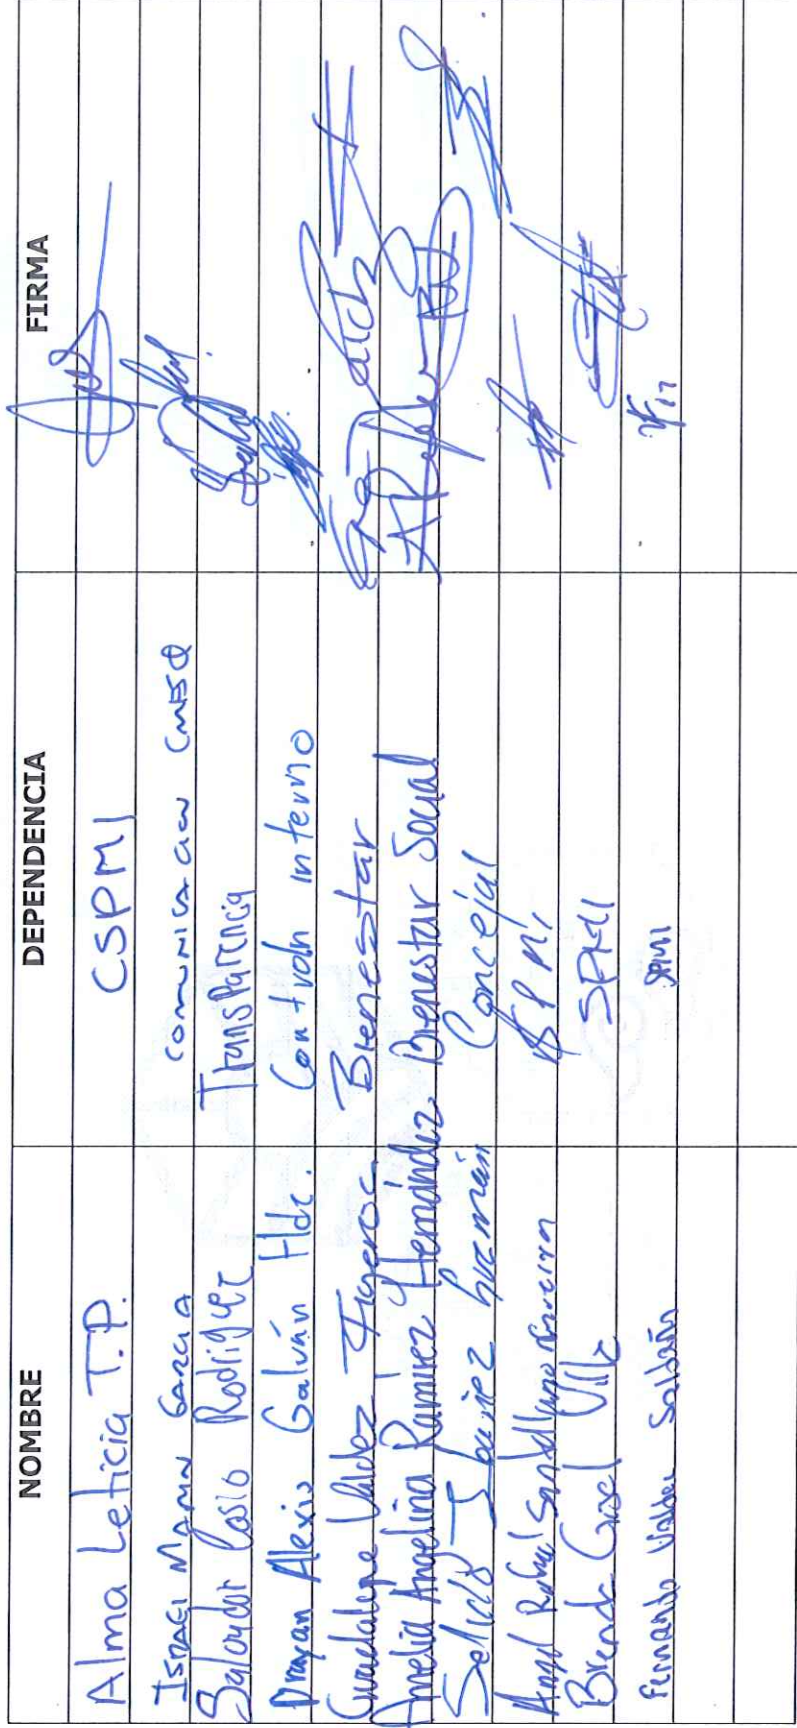 NOMBRE DEPENDENCIA FIRMA
Alma Leticia T.P. CSPMI
Israel Marin Garcia Comunicacion CMSQ
Salvador Cosio Rodriguez Transparencia
Brayan Alexis Galván Hdz. Contraln interno
Guadalupe Valdez Figueroa Bienestar
Amelia Angelina Ramírez Hernández Bienestar Social
Ibañez Guzmán Concejal
Angel Rafael
Brenda Gisel Villa SPMI
Fernando Valdez Saldaña SPMI